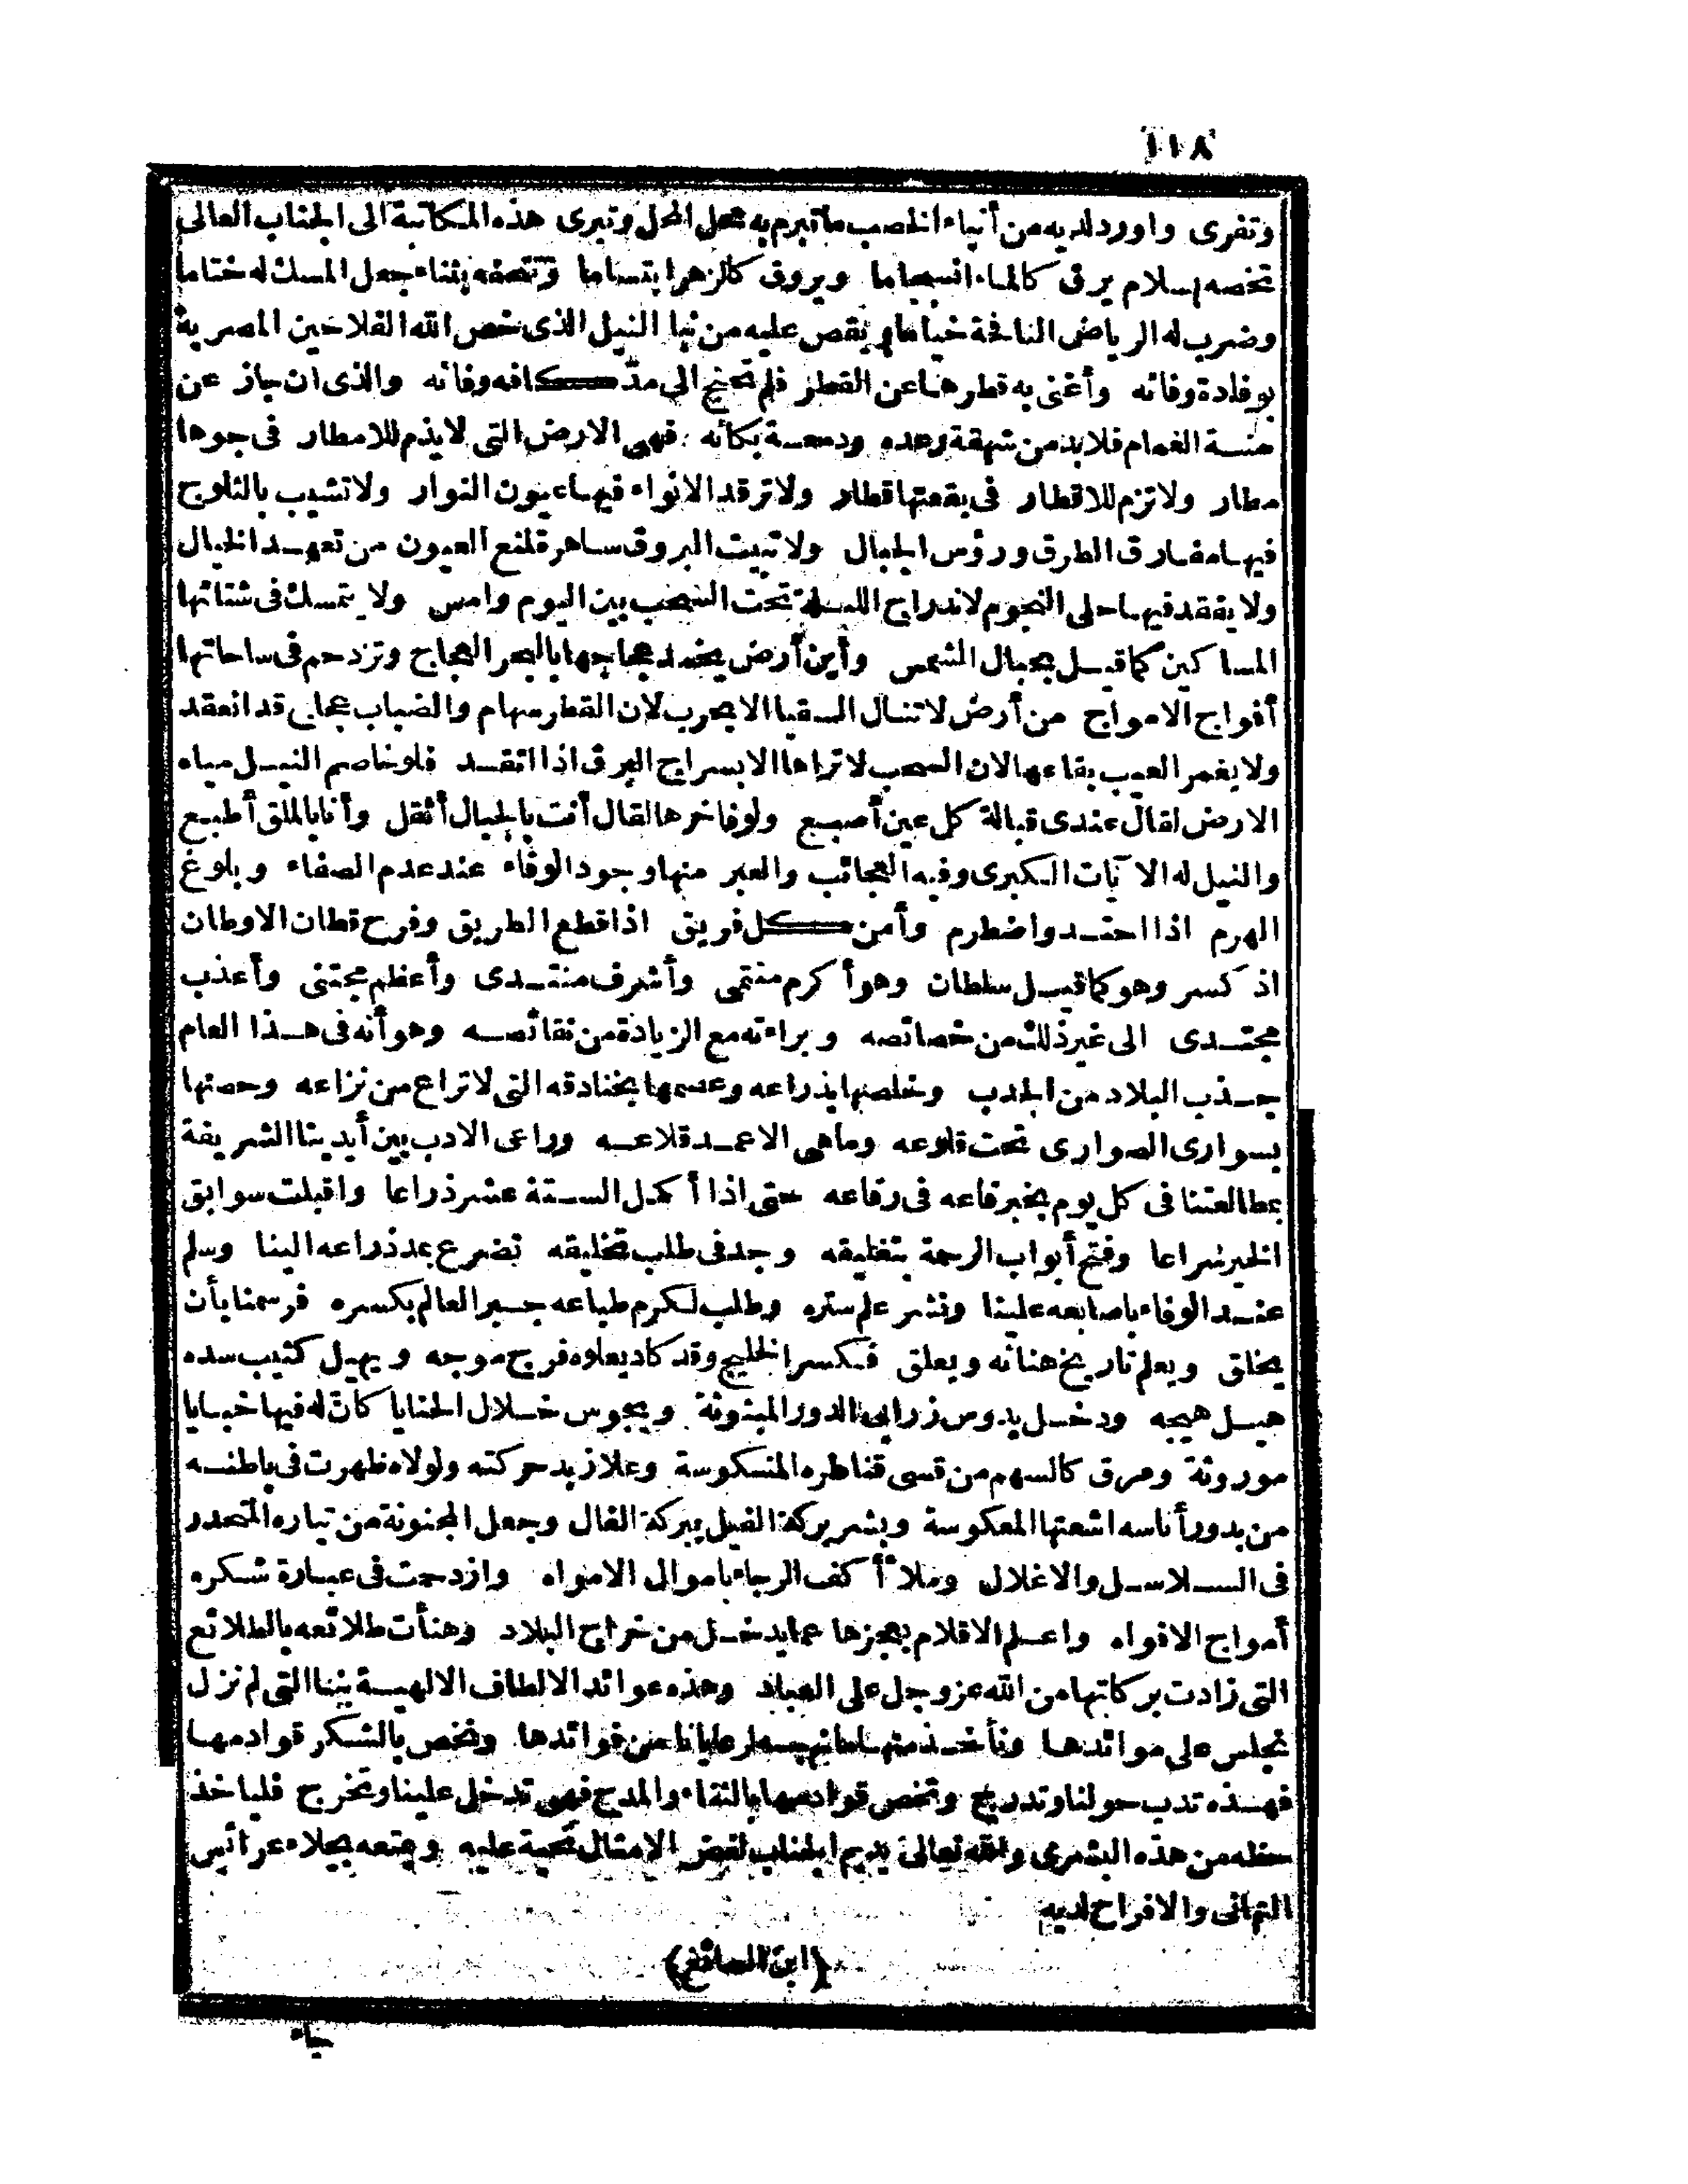 ١١٨
وتفرى واورد لديه من أنباء الخصب ما تبرم به محل المحل وتبرى هذه المكاتبة الى الجناب العالى
تخصه بسلام يرق كالماء انسجاما ويروق كالزهر ابتساما وتتحفه بثناء جعل المسك له ختاما
وضرب له الرياض النافحة خياما ونقص عليه من نبا النيل الذى خص الله الفلاحين المصرية
بوفادة وفائه وأغنى به قطرها عن القطر فلم تحتج الى مد كافه وفائه والذى ان جاز عن
منة الغمام فلا بد من شهقة رعده ودمعة بكائه فهى الارض التى لا يذم للامطار فى جوها
مطار ولا تزم للاقطار فى بقعتها قطار ولا ترقد الانواء فيها عيون النوار ولا تشيب بالثلوج
فيها مفارق الطرق ورؤس الجبال ولا تبيت البروق ساهرة لمنع العيون من تعهد الخيال
ولا يفقد فيها حلى النجوم لاندراج الليلة تحت السحب بين اليوم وامس ولا يتمسك فى شتائها
المساكين كما قيل بحبال الشمس وأين أرض يخمد عجاجها بالبحر العجاج وتزدحم فى ساحاتها
أفواج الامواج من أرض لا تنال السقيا الا بحرب لان القطر سهام والضباب عجاج قد انعقد
ولا يغمر العيب بقاعها لان السحب لا تراها الا بسراج البرق اذا اتقد فلو خاصم النيل مياه
الارض لقال عندى قبالة كل عين أصبع ولو فاخرها لقال أنت بالجبال أثقل وأنا بالملق أطبع
والنيل له الآيات الكبرى وفيه العجائب والعبر منها وجود الوفاء عند عدم الصفاء وبلوغ
الهرم اذا احتد واضطرم وأمن كل فريق اذا قطع الطريق وفرح قطان الاوطان
اذ كسر وهو كما قيل سلطان وهو أكرم منتمى وأشرف منتدى وأعظم مجتنى وأعذب
مجتدى الى غير ذلك من خصائصه وبراءته مع الزيادة من نقائصه وهو أنه فى هذا العام
جذب البلاد من الجدب وخلصها بذراعه وعصمها بخنادقه التى لا تراع من نزاعه وحصنها
بسوارى الصوارى تحت قلوعه وما هى الا عمد قلاعه وراعى الادب بين أيدينا الشريفة
بمطالعتنا فى كل يوم بخبر قاعه فى رقاعه حتى اذا أكمل الستة عشر ذراعا واقبلت سوابق
الخير سراعا وفتح أبواب الرحمة بتغليقه وجد فى طلب تخليقه تضرع بمد ذراعه الينا وسلم
عند الوفاء باصابعه علينا ونشر علم ستره وطلب لكرم طباعه جبر العالم بكسره فرسمنا بأن
يخلق ويعلم تاريخ هنائه ويعلق فكسر الخليج وقد كاد يعلوه فرج موجه ويهيل كثيب سده
هيل هيجه ودخل يدوس زرابى الدور المبثوثة ويجوس خلال الحنايا كان له فيها خبايا
موروثة ومرق كالسهم من قسى قناطره المنكوسة وعلا زبد حركته ولولاه ظهرت فى باطنه
من بدور أناسه اشعتها المعكوسة وبشر بركة الفيل ببركة الفال وجعل المجنونة من تياره المتحدر
فى السلاسل والاغلال وملا أكف الرجاء باموال الامواه وازدحمت فى عبارة شكره
أمواج الافواه واعلم الاقلام بعجزها عما يدخل من خراج البلاد وهنأت طلائعه بالطلائع
التى زادت بركاتها من الله عز وجل على العباد وهذه عوائد الالطاف الالهية بنا التى لم نزل
نجلس على موائدها ونأخذ منها من فوائدها ونخص بالشكر قوادمها
فهذه تدب حولنا وتدرج وتخص قوادمها بالثناء والمدح فهى تدخل علينا وتخرج فلياخذ
حظه من هذه البشرى والله تعالى يديم الجناب لغض الامثال تحية عليه ويمتعه بجلاء عرائس
التهانى والافراح لديه
(ابن الصائغ)
جاء